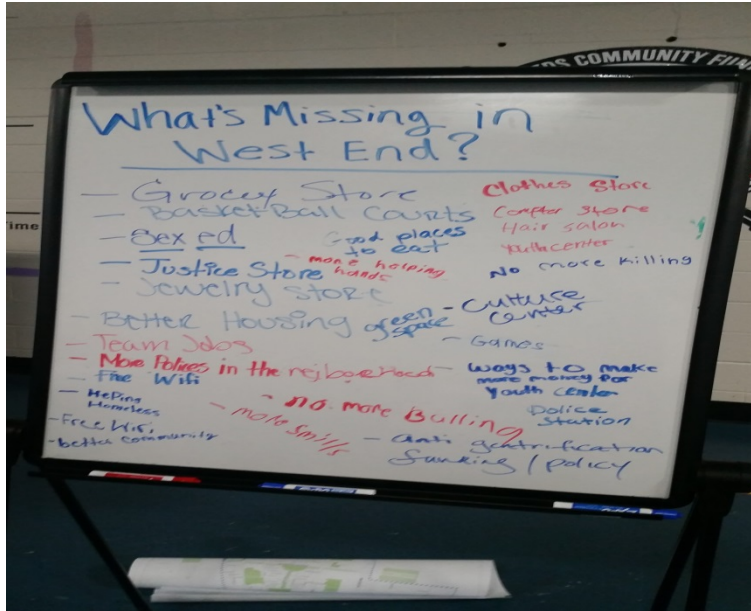 COMMUNITY
What's Missing in
West End?
- Grocery Store
- BasketBall Courts
- Sex ed
- Justice Store
- Jewelry store
- Better Housing
- Team Jobs
- More Polices in the
- Free Wifi
- Helping
Homeless
- Free Wifi
- better community
Good places
to eat
- more helping
hands
green
space
- more Smills
- no more Bulling
Clothes Store
Compter Store
Hair salon
Youth center
No more killing
- Culture
Center
- Games
- ways to make
more money for
Youth center
Police
Station
- anti gentrification
/ policy
Time